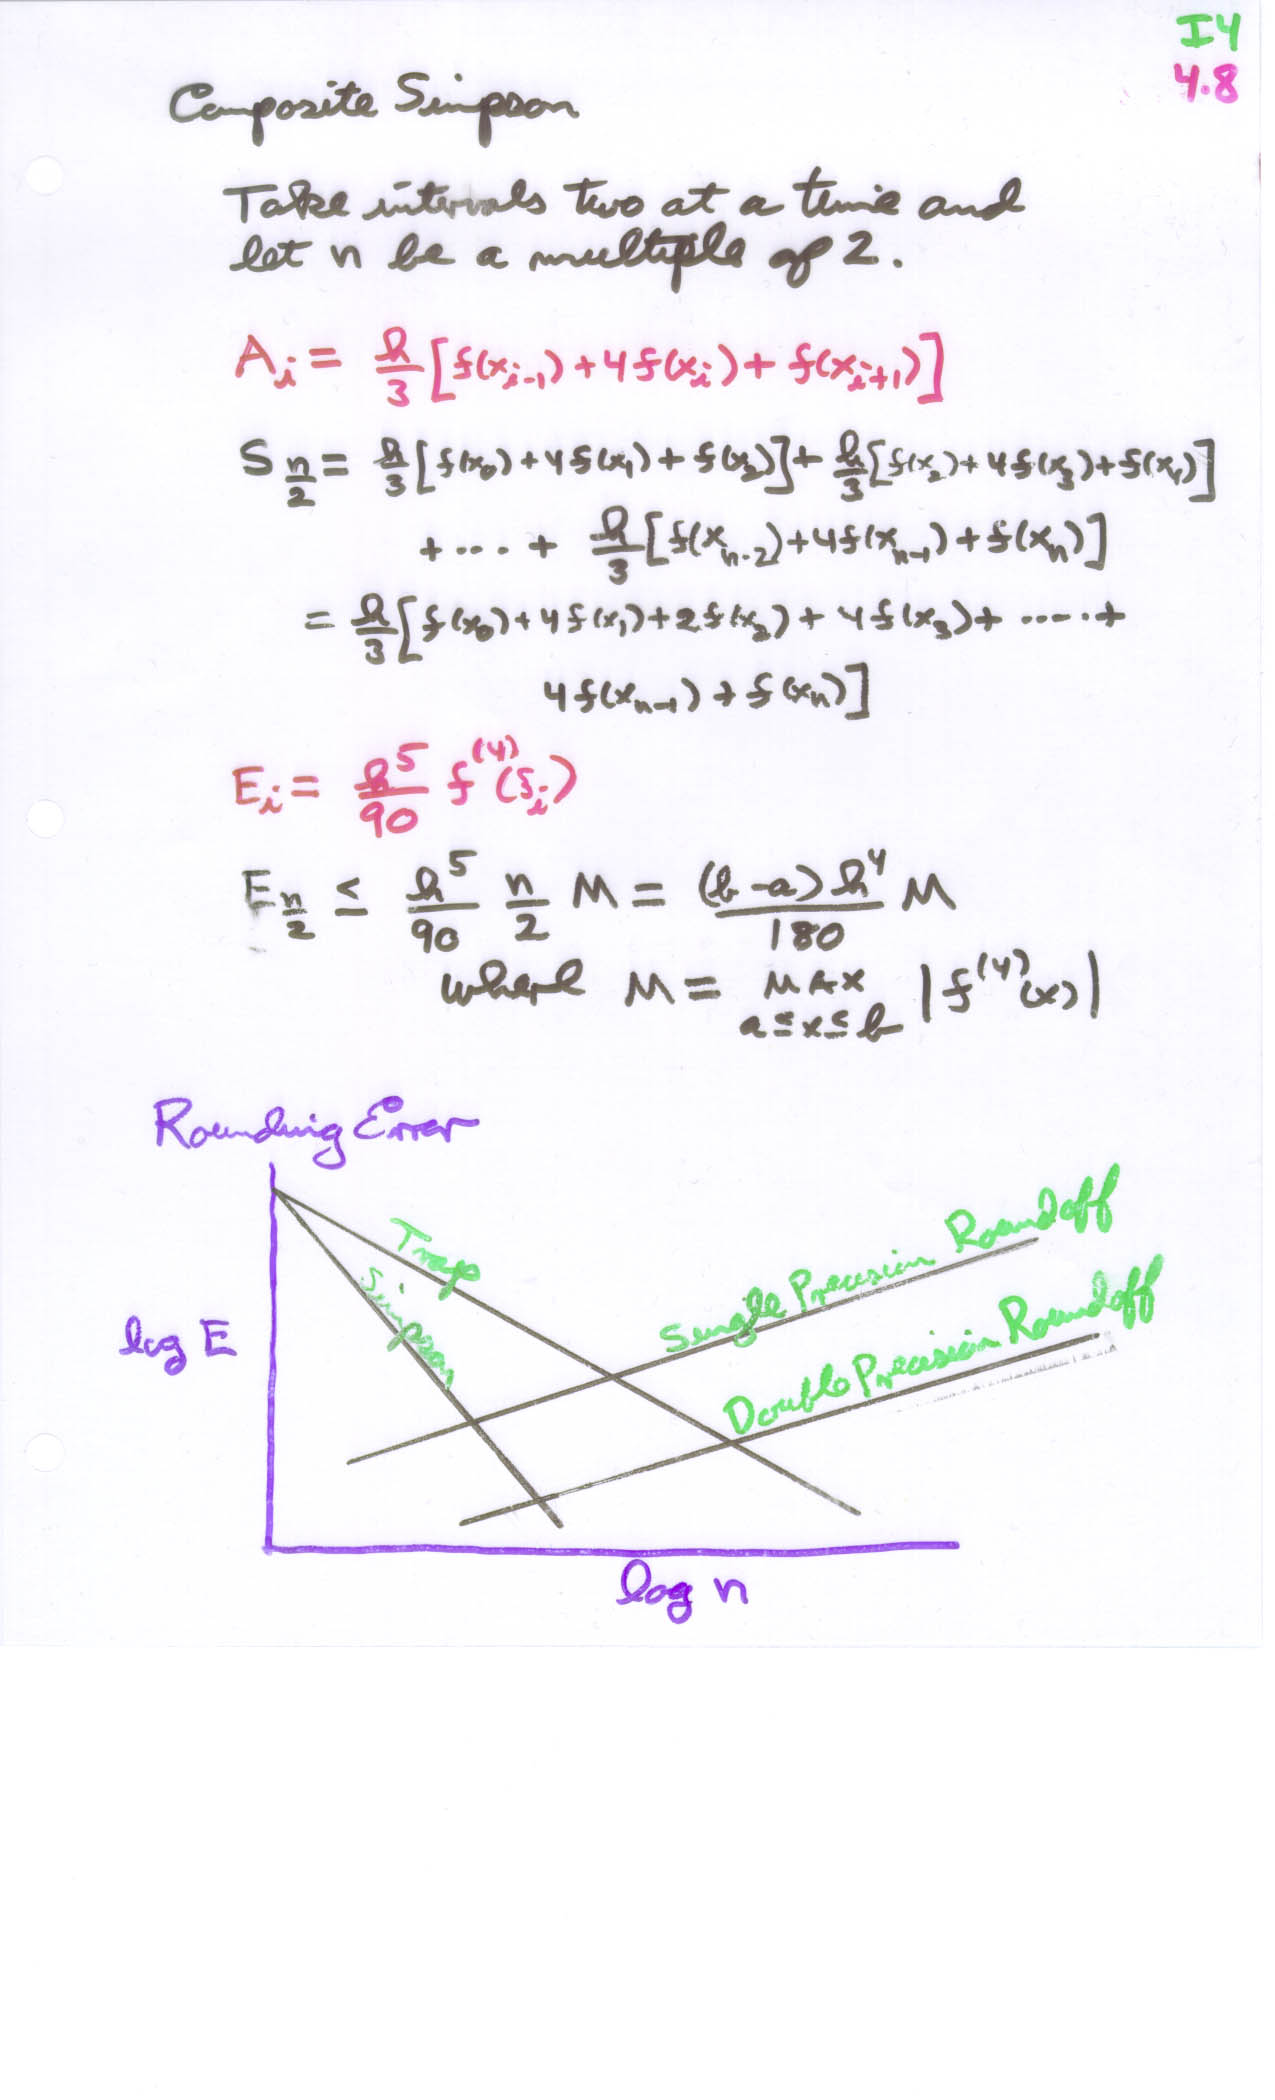 I4
4.8
Composite Simpson
Take intervals two at a time and
let n be a multiple of 2.
A_i = h/3 [f(x_{i-1}) + 4f(x_i) + f(x_{i+1})]
S_{n/2} = h/3 [f(x_0) + 4f(x_1) + f(x_2)] + h/3 [f(x_2) + 4f(x_3) + f(x_4)]
+ ... + h/3 [f(x_{n-2}) + 4f(x_{n-1}) + f(x_n)]
= h/3 [f(x_0) + 4f(x_1) + 2f(x_2) + 4f(x_3) + ..... +
4f(x_{n-1}) + f(x_n)]
E_i = h^5/90 f^{(4)}(ξ_i)
E_{n/2} ≤ h^5/90 n/2 M = (b-a)h^4/180 M
where M = MAX_{a≤x≤b} |f^{(4)}(x)|
Rounding Error
Trap
Simpson
Single Precision Roundoff
Double Precision Roundoff
log E
log n